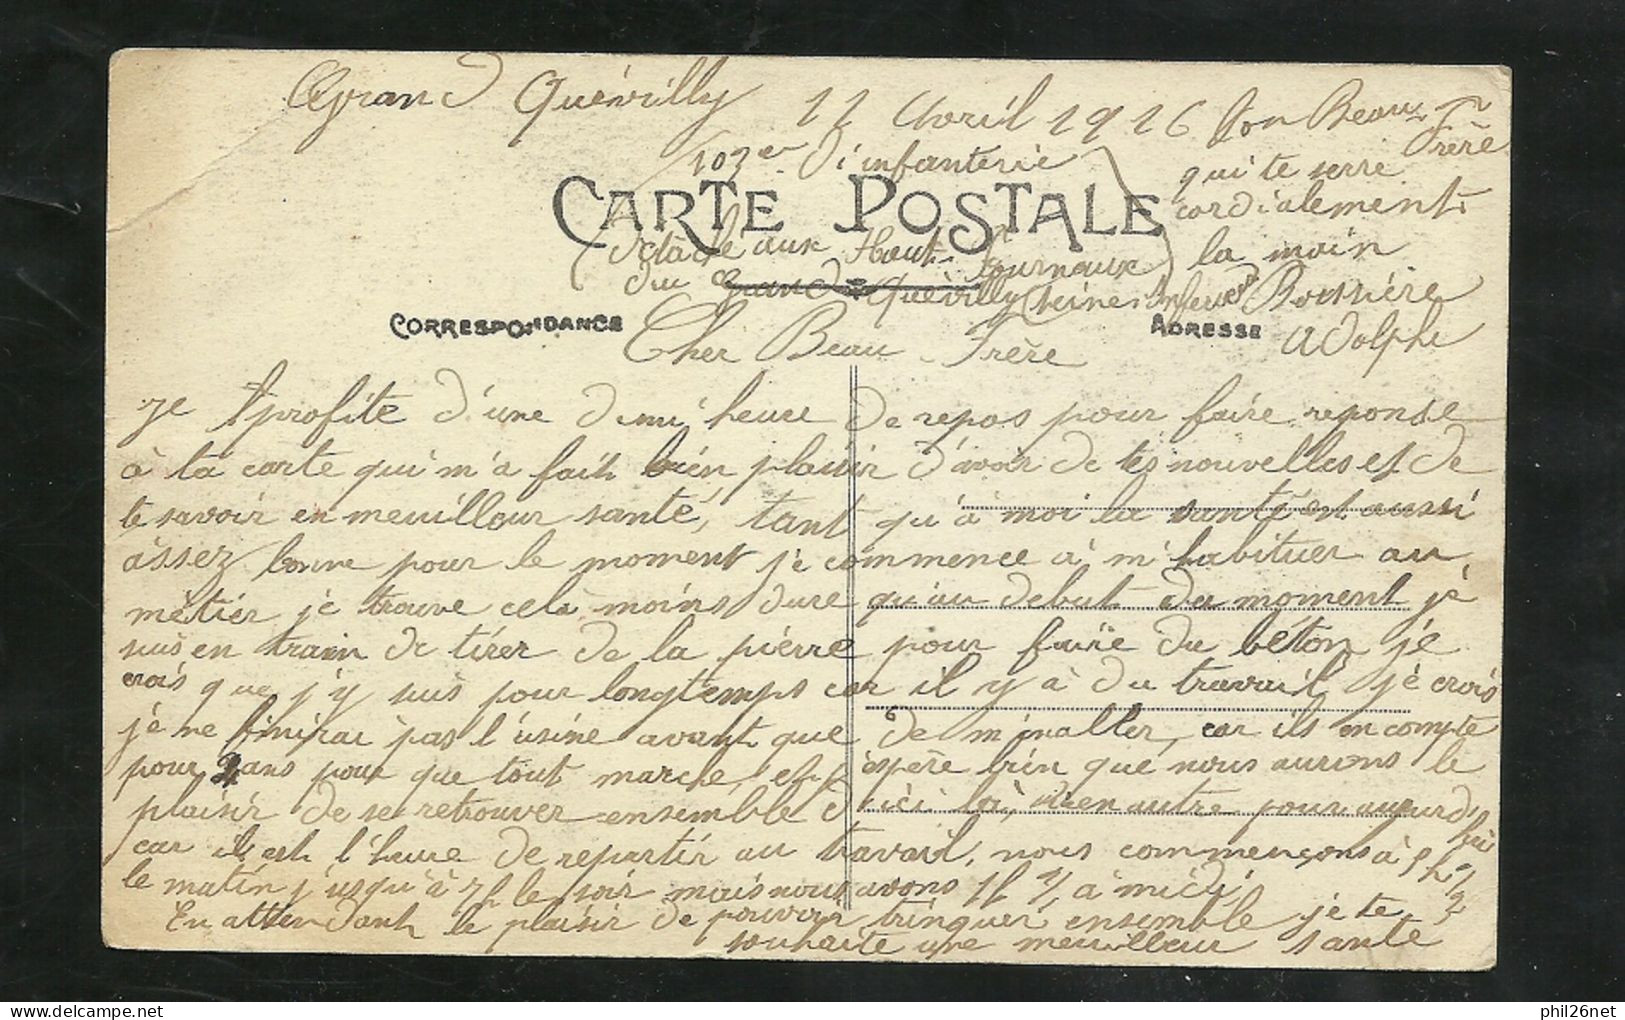 Grand Quévilly 11 Avril 1916
103er d'infanterie
CARTE POSTALE
détaché aux Haut-Fourneaux
du Grand Quévilly (Seine Inferre)
CORRESPONDANCE
ADRESSE
Cher Beau-Frère
je profite d'une demi heure de repos pour faire reponse
à ta carte qui m'a fait bien plaisir d'avoir de tes nouvelles et de
te savoir en meuilleur santé, tant qu'à moi la santé est aussi
assez bonne pour le moment je commence à m'habituer au
mètier je trouve cela moins dure qu'au debut du moment je
suis en train de tirer de la pierre pour faire du béton je
crois que j'y suis pour longtemps car il y à du travail, je crois
je ne finirai pas l'usine avant que de m'en aller, car ils en compte
pour 2 ans pour que tout marche, et j'éspère bien que nous aurons le
plaisir de se retrouver ensemble d'ici là, rien autre pour aujourd'hui
car il est l'heure de repartir au travail, nous commençons à 5h 1/2
le matin jusqu'à 7h le soir mais nous avons 1h 1/2 à midi
En attendant le plaisir de pouvoir trinquer ensemble je te
souhaite une meuilleur santé
Ton Beau-Frère
qui te serre
cordialement
la main
Boissière
Adolphe
phil26net